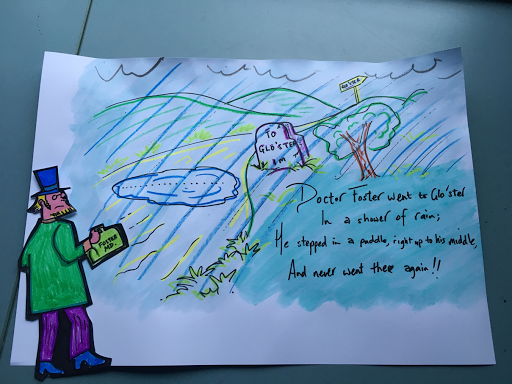 TO
GLO'STER
1 M
FOSTER
MD.
Doctor Foster went to Glo'ster
In a shower of rain;
He stepped in a puddle, right up to his middle,
And never went there again!!